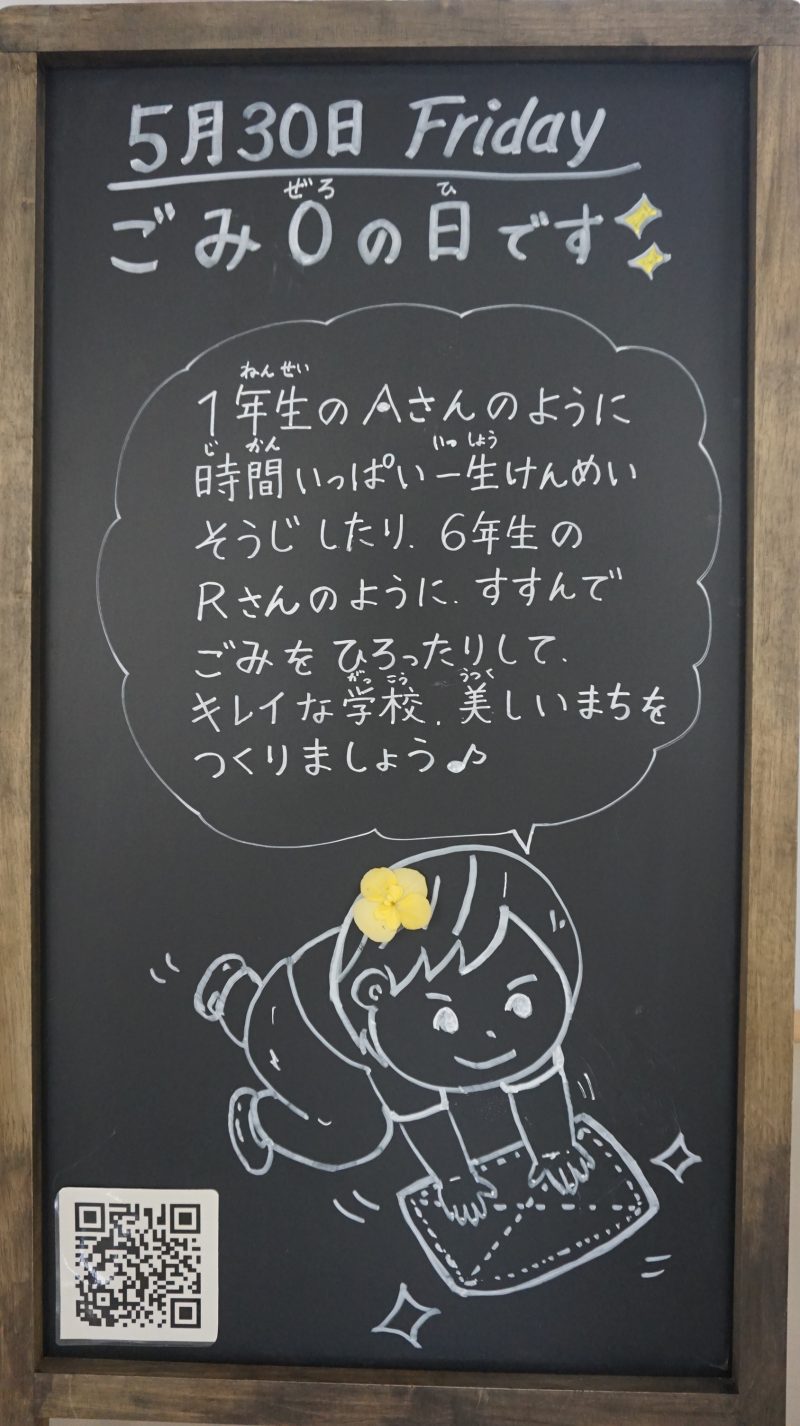 5月30日 Friday
ぜろ ひ
ごみ0の日です
ねんせい
1年生のAさんのように
じかん いっしょう
時間いっぱい一生けんめい
そうじしたり、6年生の
Rさんのように、すすんで
ごみをひろったりして、
がっこう うつく
キレイな学校、美しいまちを
つくりましょう♪